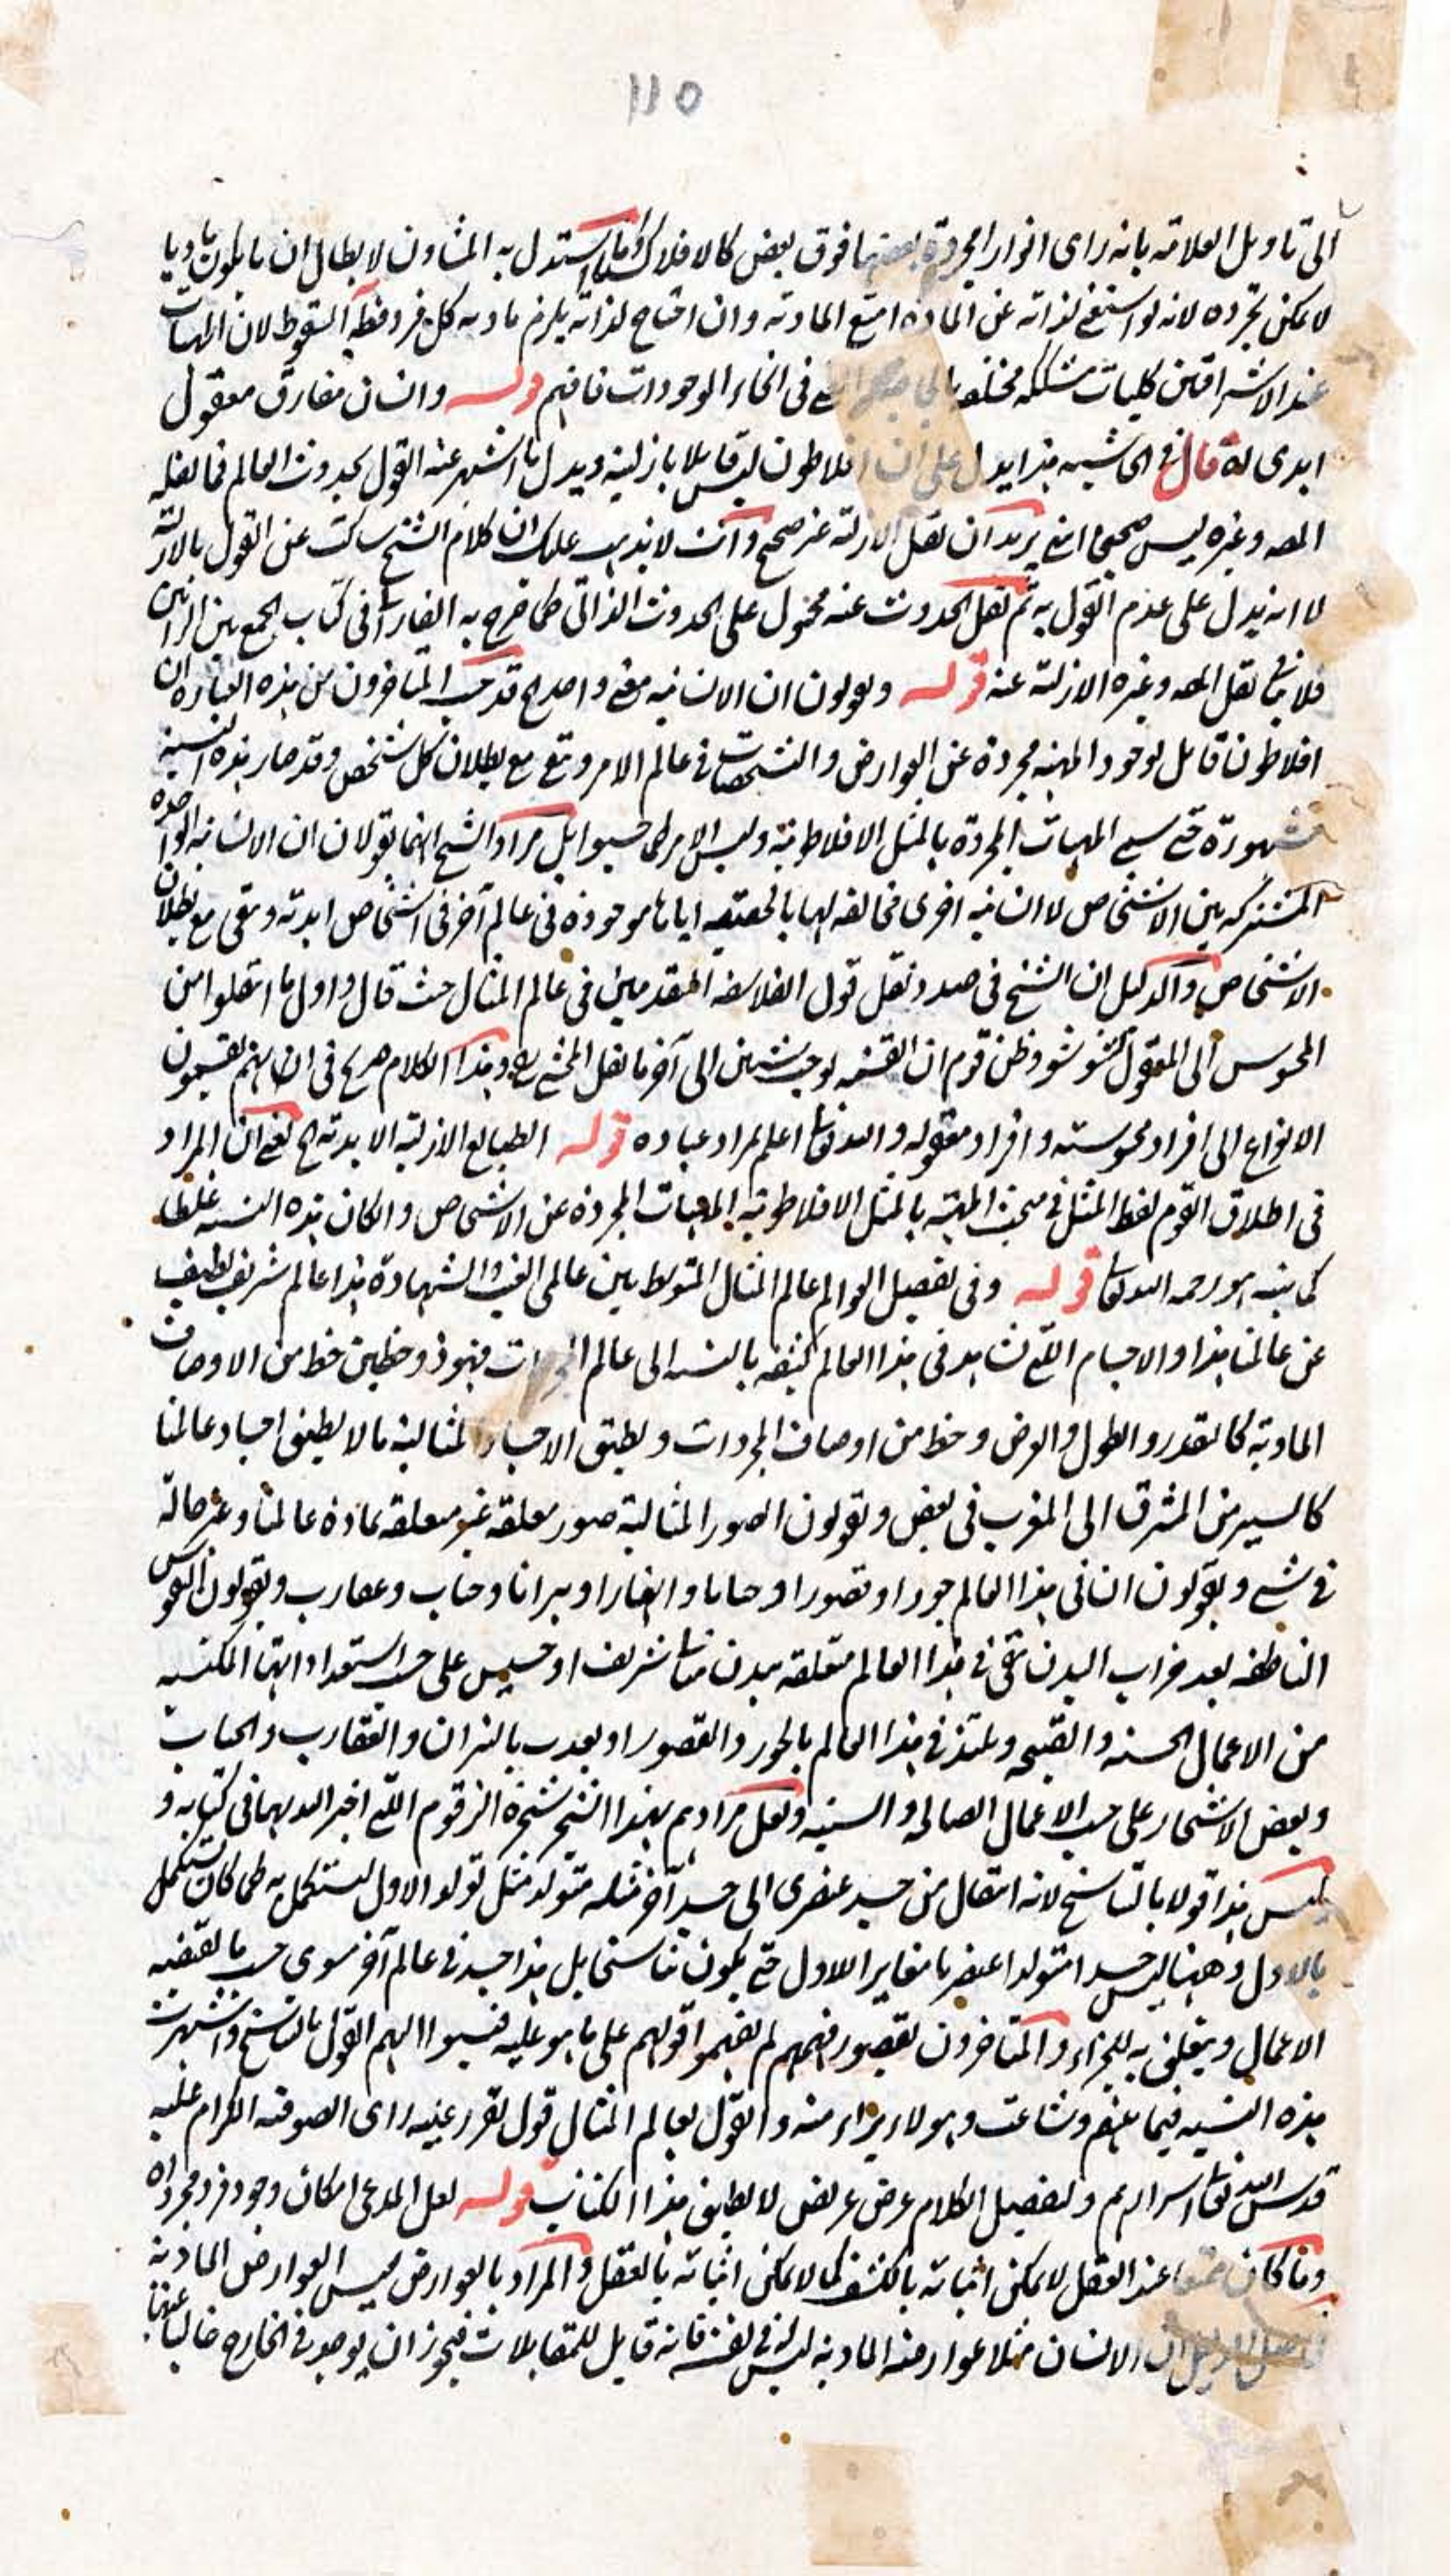 ١١٥
الى تاويل العلامة بانه راى انوار المجردة بعضها فوق بعض كالافلاك وما استدل به المشاون لابطال ان ما يكون ماديا
لا يمكن تجرده لانه لو استغنى لذاته عن المادة امتنع المادية وان احتاج لذاته يلزم مادية كل فرد فظاهر السقوط لان الماهيات
عند الاشراقيين كليات مشككة مختلفة في انحاء الوجودات فافهم قوله وانسان مفارق معقول
ابدى اه قال في الحاشية هذا يدل على ان افلاطون ليس قايلا بازليته ويدل ما اشتهر عنه القول بحدوث العالم فما نقله
المصه وغيره ليس صحيحا انتهى يريد ان نقل الازلية غير صحيح وانت لا يذهب عليك ان كلام الشيخ ساكت عن القول بالازلية
لا انه يدل على عدم القول به ثم نقل الحدوث عنه محمول على الحدوث الذاتى كما صرح به الفارابى فى كتاب الجمع بين الرائين
فلا ينافى نقل المصه وغيره الازلية عنه قوله ويقولون ان الانسانية معنى واحد اه قد حسب المتاخرون من هذه العبارة ان
افلاطون قايل لوجود المهية مجردة عن العوارض والتشخصات في عالم الامر وتبقى مع بطلان كل شخص وقد صار هذه النسبة
مشهورة حتى سمى المهيات المجردة بالمثل الافلاطونية وليس الامر كما حسبوا بل مراد الشيخ انهما يقولان ان الانسانية الواحدة
المشتركة بين الاشخاص لا انسانية اخرى مخالفة لها بالحقيقة اياها موجودة فى عالم آخر فى اشخاص ابدية وتبقى مع بطلان
الاشخاص والدليل ان الشيخ فى صدد نقل قول الفلاسفة المتقدمين فى عالم المثال حيث قال واول ما انتقلوا من
المحسوس الى المعقول تشوشوا وظن قوم ان القسمة يوجب شيئين الى آخر ما نقل المحشى رح وهذا الكلام صريح فى انهم يقسمون
الانواع الى افراد محسوسة وافراد معقولة والله تعالى اعلم لمراد عباده قوله الطبايع الازلية الابدية اه يعنى ان المراد
فى اطلاق القوم لفظ المثل فى مبحث المهية بالمثل الافلاطونية المهيات المجردة عن الاشخاص والكان هذه النسبة غلطا
كما بينه هو رحمه الله تعالى قوله وفى تفصيل العوالم عالم المثال المتوسط بين عالمى الغيب والشهادة هذا عالم شريف لطيف
عن عالمنا هذا والاجسام التى نشاهد فى هذا العالم كثيفة بالنسبة الى عالم المجردات فهو ذو حظين حظ من الاوصاف
المادية كالتقدر والطول والعرض وحظ من اوصاف المجردات ويطيق الاجساد المثالية ما لا يطيق اجساد عالمنا
كالسير من المشرق الى المغرب فى بعض ويقولون الصور المثالية صور معلقة غير متعلقة بمادة عالمنا وغير حالة
فى شى ويقولون ان فى هذا العالم حورا وقصورا وحياتا وانهارا ونيرانا وحيات وعقارب ويقولون النفوس
الناطقة بعد خراب البدن تبقى فى هذا العالم متعلقة ببدن مثالى شريف او خسيس على حسب استعداداتها المكتسبة
من الاعمال الحسنة والقبيحة ويلتذ فى هذا العالم بالحور والقصور او يعذب بالنيران والعقارب والحيات
وبعض الاشجار على حسب الاعمال الصالحة والسيئة ولعل مرادهم بهذا الشجر شجرة الزقوم التى اخبر الله بها فى كتابه و
ليس هذا قولا بالتناسخ لانه انتقال من جسد عنصرى الى جسد آخر مثله متولد مثل تولد الاول ليستكمل به كما كان يستكمل
بالاول وههنا ليس جسدا متولدا عنصريا مغايرا للاول حتى يكون تناسخا بل هذا جسد فى عالم آخر سوى حسب ما يقتضيه
الاعمال ويتعلق به للجزاء والمتاخرون لقصور فهمهم لم يفهموا قولهم على ما هو عليه فنسبوا اليهم القول بالتناسخ واشتهرت
هذه النسبة فيما بينهم وشاعت وهولاء براء منه والقول بعالم المثال قول تقرر عليه راى الصوفية الكرام عليه
قدس الله تعالى اسرارهم ولتفصيل الكلام عرض عريض لا يطيق هذا الكتاب قوله لعل المدعى امكان وجود فرد مجرد اه
وما كان ممتنعا عند العقل لا يمكن اثباته بالكشف كما لا يمكن اثباته بالعقل والمراد بالعوارض ليس العوارض المادية
الانسان مثلا عوارضه المادية ليس له فى نفسه فانه قابل للمتقابلات فيجوز ان يوجد فى الخارج خاليا عنها